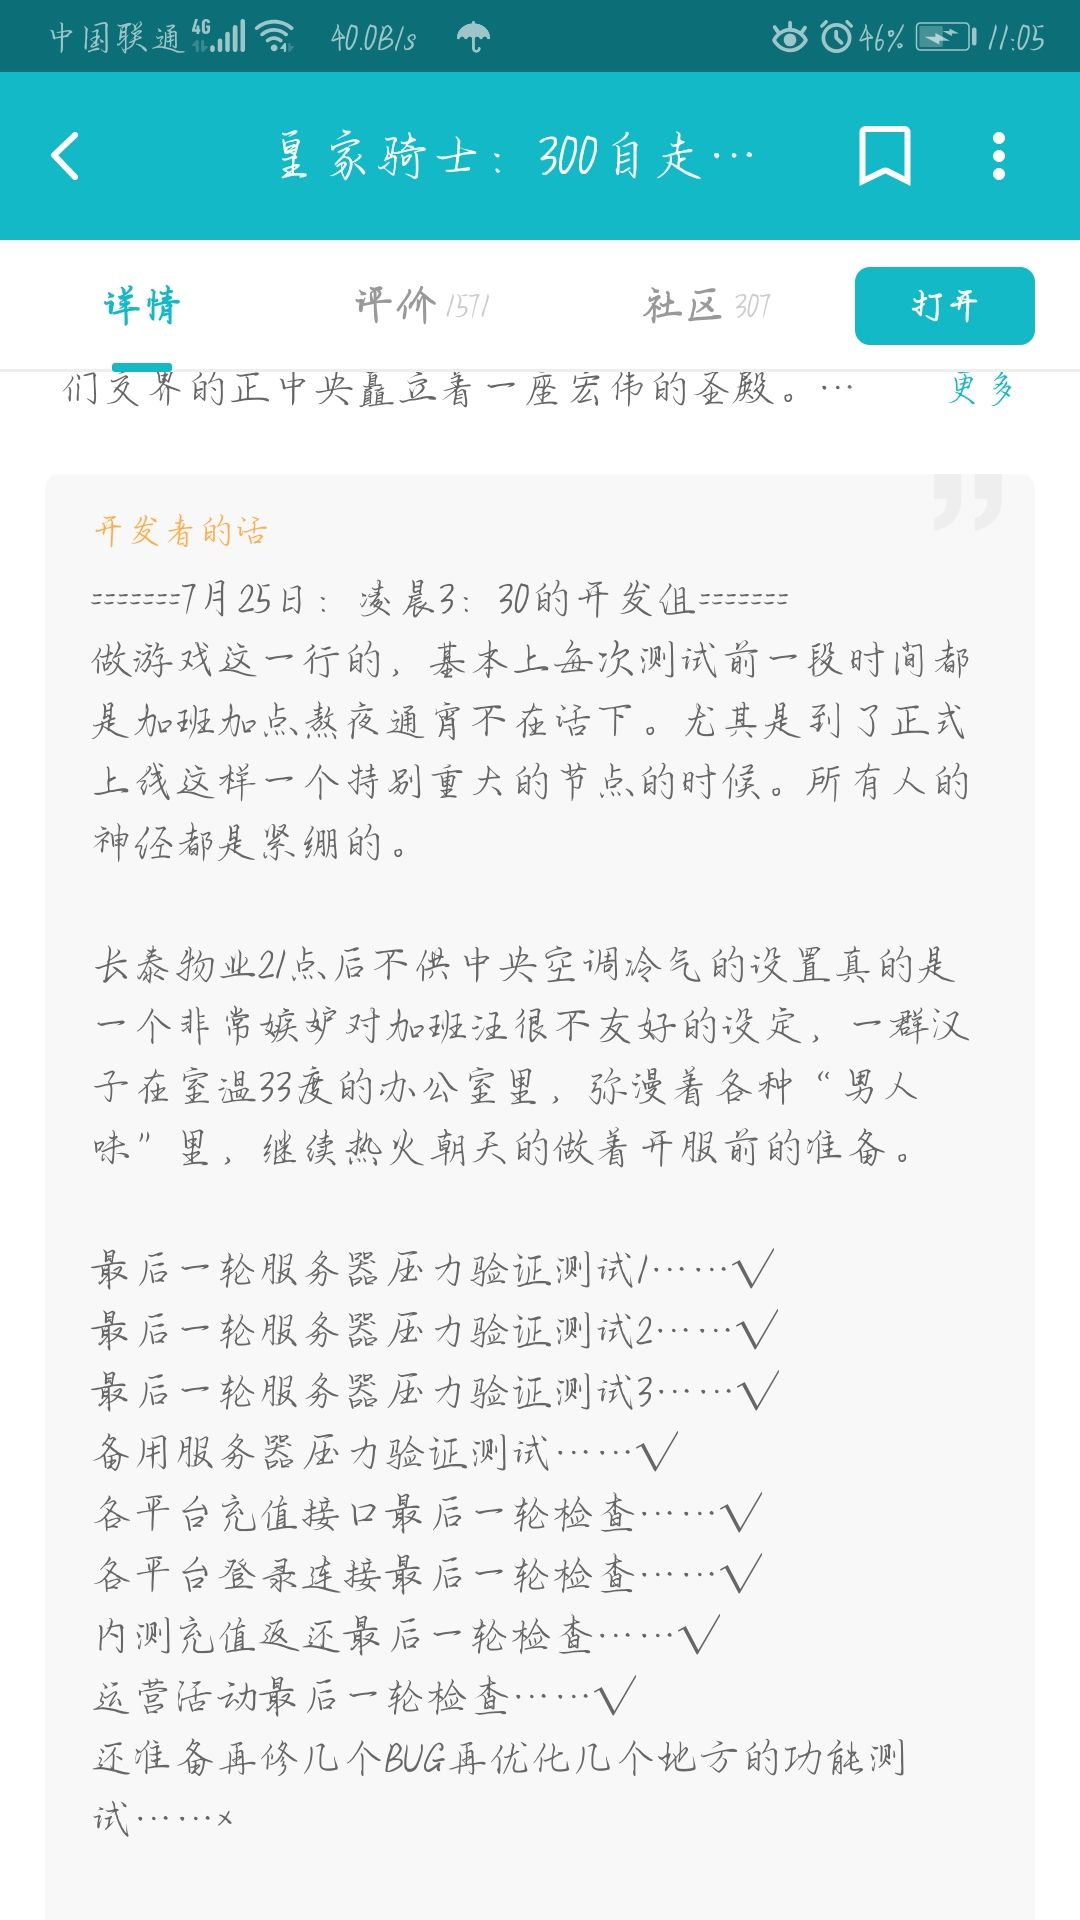 中国联通 4G 40.0B/s 46% 11:05
皇家骑士：300自走…
详情 评价 1571 社区 307 打开
们交界的正中央矗立着一座宏伟的圣殿。… 更多
开发者的话
=======7月25日：凌晨3：30的开发组=======
做游戏这一行的，基本上每次测试前一段时间都
是加班加点熬夜通宵不在话下。尤其是到了正式
上线这样一个特别重大的节点的时候。所有人的
神经都是紧绷的。
长泰物业21点后不供中央空调冷气的设置真的是
一个非常嫉妒对加班汪很不友好的设定，一群汉
子在室温33度的办公室里，弥漫着各种“男人
味”里，继续热火朝天的做着开服前的准备。
最后一轮服务器压力验证测试1……√
最后一轮服务器压力验证测试2……√
最后一轮服务器压力验证测试3……√
备用服务器压力验证测试……√
各平台充值接口最后一轮检查……√
各平台登录连接最后一轮检查……√
内测充值返还最后一轮检查……√
运营活动最后一轮检查……√
还准备再修几个BUG再优化几个地方的功能测
试……×